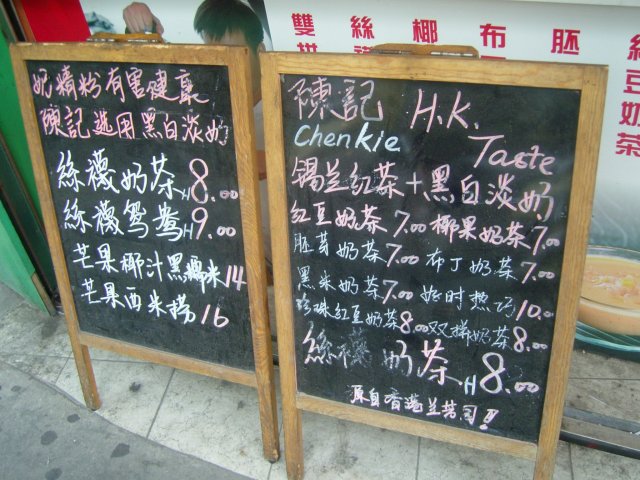 奶精粉有害健康
陳記选用黑白淡奶
絲襪奶茶H8.00
絲襪鴛鴦H9.00
芒果椰汁黑糯米14
芒果西米捞16
陳記 H.K.
Chenkie Taste
锡兰红茶+黑白淡奶
红豆奶茶7.00 椰果奶茶7.00
胚芽奶茶7.00 布丁奶茶7.00
黑米奶茶7.00 好时热巧10.00
珍珠红豆奶茶8.00 双拼奶茶8.00
絲襪奶茶H8.00
源自香港兰芳园!
雙拼
絲襪
椰
布
胚
豆奶茶